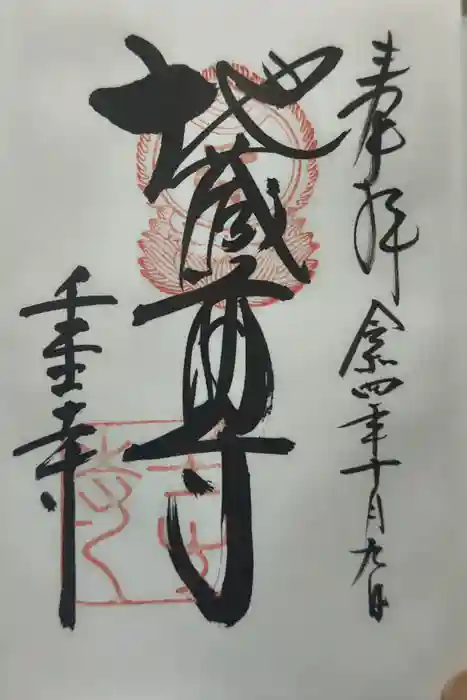 奉拝
令和四年十月九日
地蔵尊